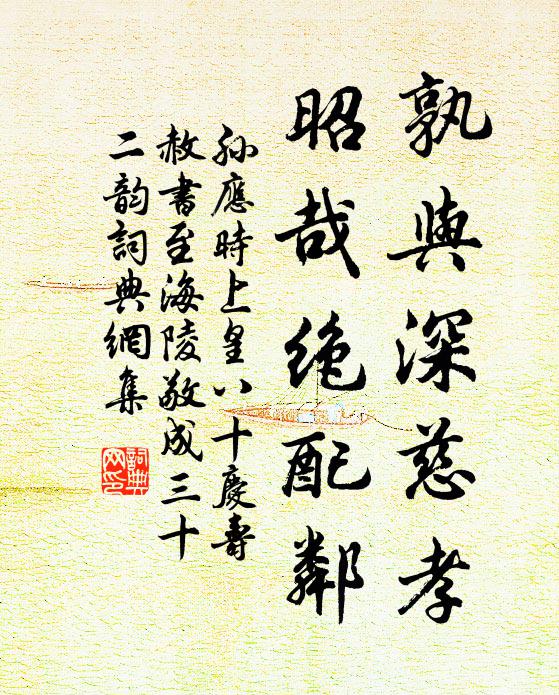 孰與深慈孝
昭哉絶配鄰
孫應時上皇八十慶壽
赦書至海陵敬成三十
二韵詞典網集
詞典網印